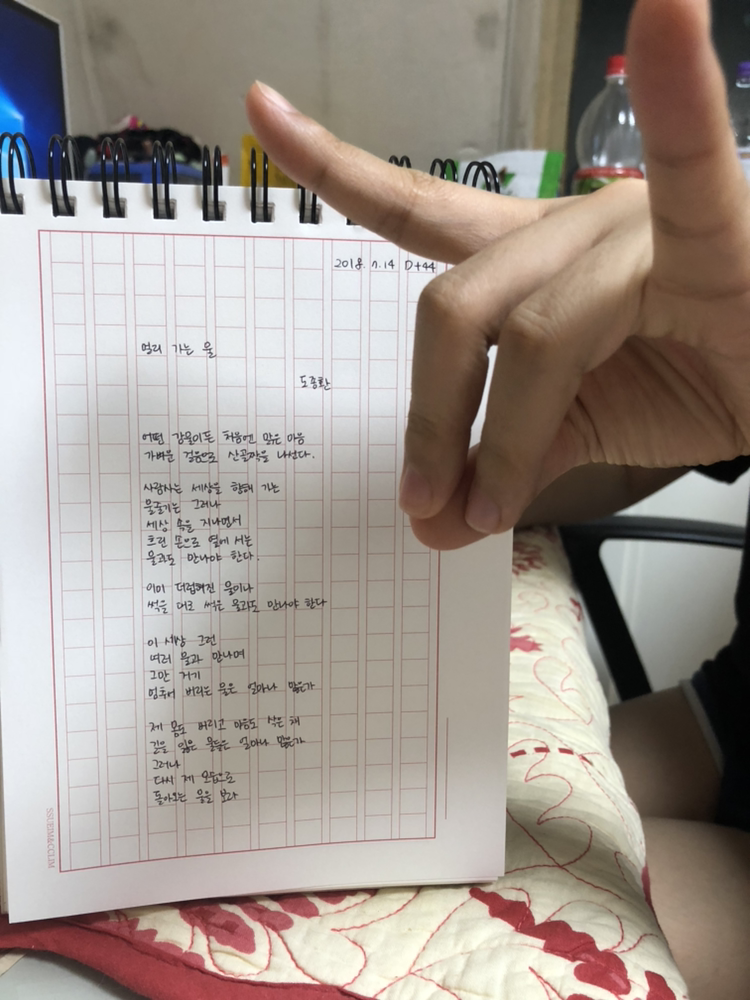 2018. 7. 14 D+44
멀리 가는 물
도종환
어떤 강물이든 처음엔 맑은 마음
가벼운 걸음으로 산골짝을 나선다.
사람사는 세상을 향해 가는
물줄기는 그러나
세상 속을 지나면서
흐린 손으로 옆에 서는
물과도 만나야 한다.
이미 더럽혀진 물이나
썩을 대로 썩은 물과도 만나야 한다
이 세상 그런
여러 물과 만나며
그만 거기
멈추어 버리는 물은 얼마나 많은가
제 몸도 버리고 마음도 삭은 채
길을 잃은 물들은 얼마나 많은가
그러나
다시 제 모습으로
돌아오는 물을 보라
SSUEIMACCLIM